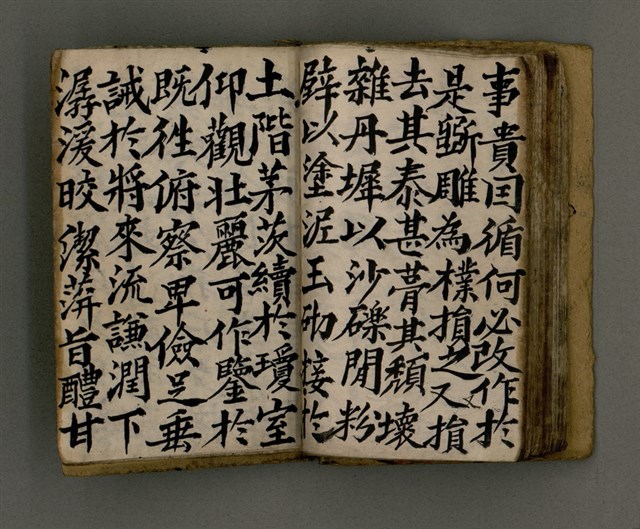 事貴囙循何必改作於
是斲雕為樸損之又損
去其泰甚葺其頽壞
雜丹墀以沙礫閒粉
壁以塗泥玉砌接於
土階茅茨續於瓊室
仰觀壯麗可作鑒於
既徃俯察卑儉足垂
誡於將來流謙潤下
潺湲晈潔蓱旨醴甘